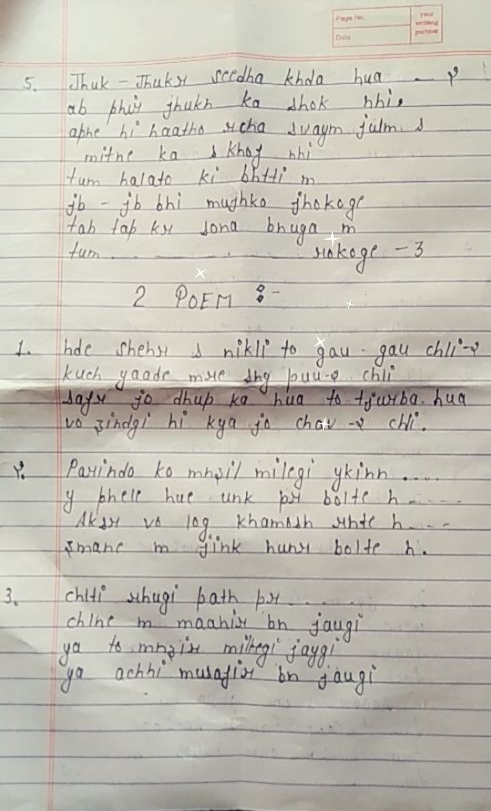 Page No.
Date
your writing partner
5. Jhuk - Jhukr seedha khda hua - २
ab phir jhukh ka shok nhi,
apne hi haatho rcha svaym julm s
mitne ka s khof nhi
tum halato ki bhtti m
jb - jb bhi mujhko jhokoge
tab tap kr sona bnuga m
tum .......... rokoge - 3
2 POEM :-
1. bde shehr s nikli to gau - gau chli -२
kuch yaade mre sng puu-० chli
safr jo dhup ka hua to tjurba hua
vo zindgi hi kya jo chav -२ chli.
२. Parindo ko mnzil milegi ykinn ....
y phele hue unk pr bolte h ....
Aksr vo log khamosh rhte h...
zmane m jink hunr bolte h.
3. chlti rhugi path pr ......
chlne m maahir bn jaugi
ya to mnzir milnegi jaygi
ya achhi musafir bn jaugi